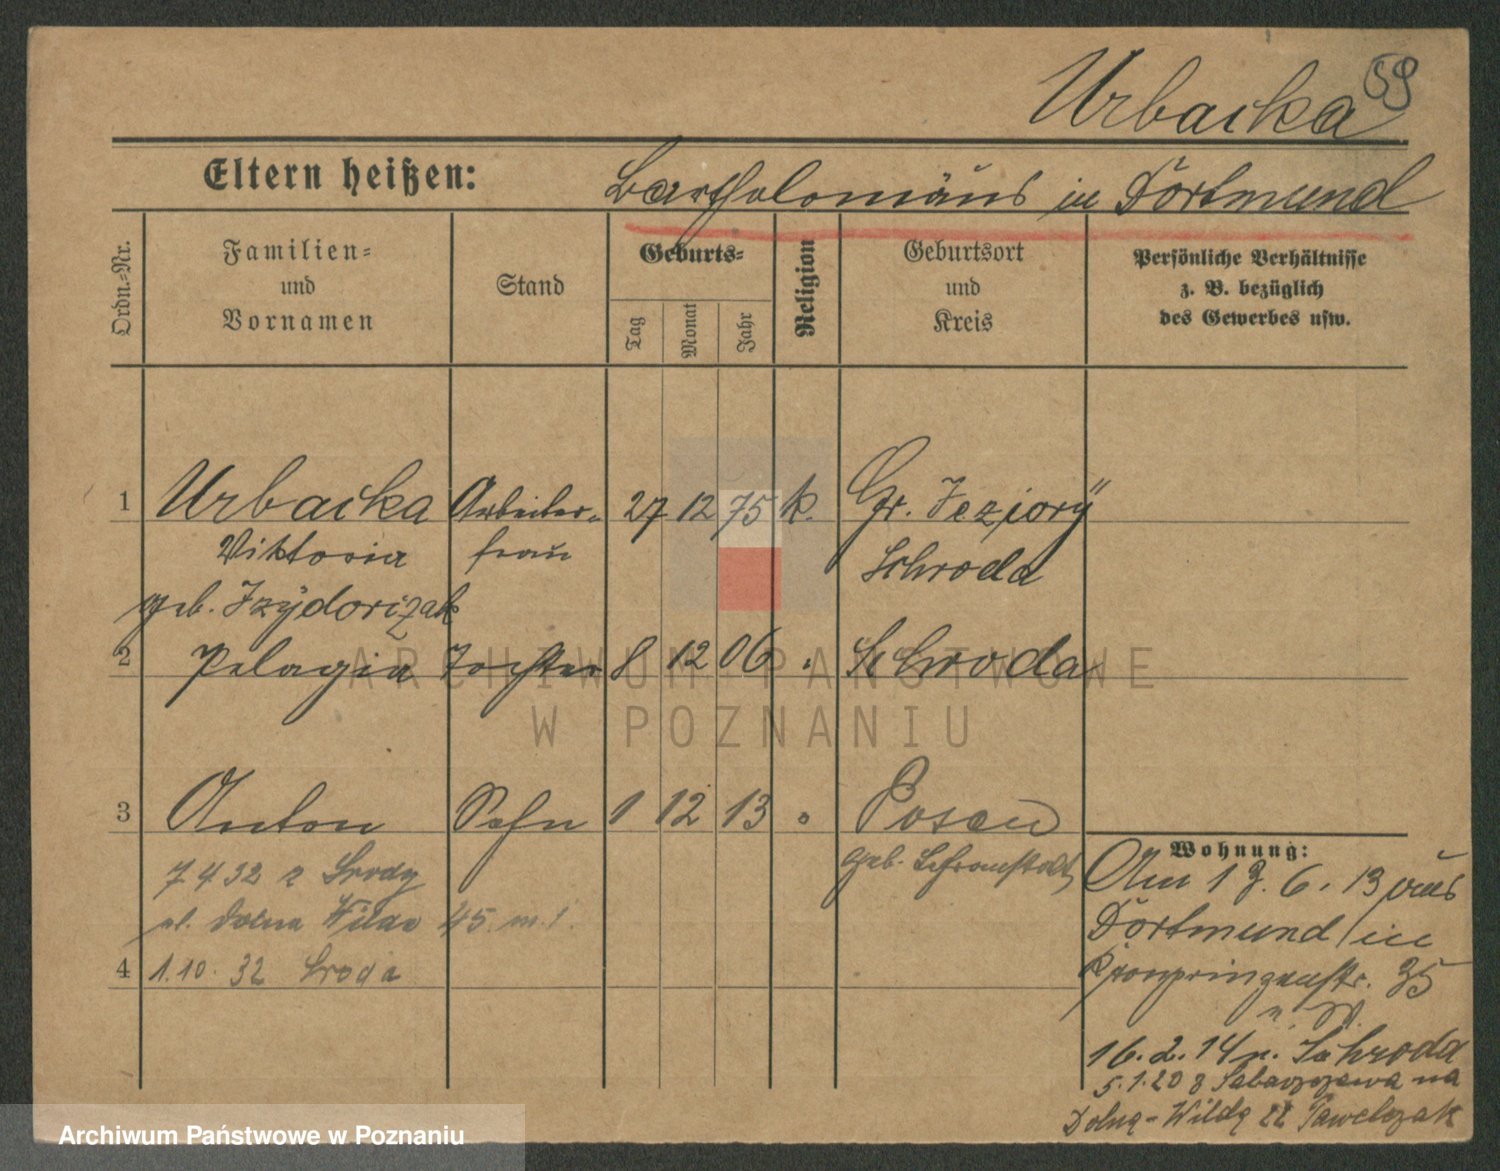 59
Urbacka
Eltern heißen: Bartholomäus in Dortmund
Ordn.-Nr.
Familien-
und
Vornamen
Stand
Geburts-
Tag
Monat
Jahr
Religion
Geburtsort
und
Kreis
Persönliche Verhältnisse
z. B. bezüglich
des Gewerbes usw.
1 Urbacka Arbeiter- 27 12 75 k. Gr. Jeziory
Viktoria frau Schroda
geb. Izydorczak
2 Pelagia Tochter 8 12 06 " Schroda
3 Anton Sohn 1 12 13 " Posen
7 4 32 z Środy
ul. Dolna Wilda 45 m. 1.
4 1.10. 32 Środa
Wohnung:
Am 13. 6. 13 aus
Dortmund in
Kronprinzenstr. 35
16. 2. 14 n. Schroda
5.1.20 z na
Dolną-Wildą 22 Pawelczak
ARCHIWUM PAŃSTWOWE
W POZNANIU
Archiwum Państwowe w Poznaniu